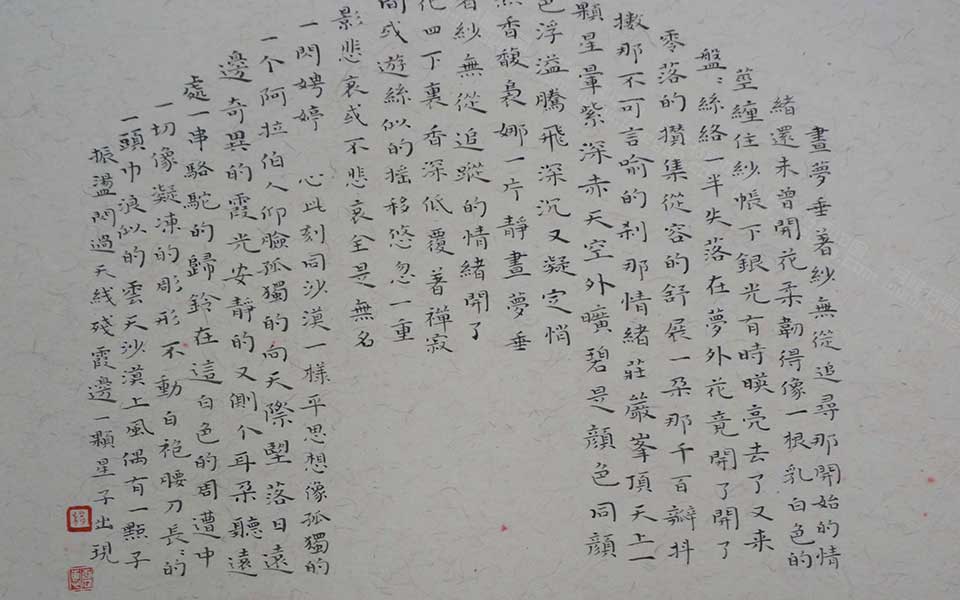 晝夢垂著紗無從追尋那開始的情
緒還未曾開花柔韌得像一根乳白色的
莖纏住紗帳下銀光有時暎亮去了又来
盤〻絲絡一半失落在夢外花竟開了開了
零落的攢集從容的舒展一朵那千百瓣抖
擻那不可言喻的刹那情緒莊嚴峯頂天上一
顆星暈紫深赤天空外曠碧是顏色同顏
色浮溢騰飛深沉又凝定悄
然香馥裊娜一片靜晝夢垂
著紗無從追蹤的情緒開了
花四下裏香深低覆著禪寂
間或遊絲似的搖移悠忽一重
影悲哀或不悲哀全是無名
一閃娉婷 心此刻同沙漠一樣平思想像孤獨的
一个阿拉伯人仰臉孤獨的向天際望落日遠
邊奇異的霞光安靜的又側个耳朵聽遠
處一串駱駝的歸鈴在這白色的周遭中
一切像凝凍的彫形不動白袍腰刀長〻的
一頭巾浪似的雲天沙漠上風偶有一點子
振盪閃過天綫殘霞邊一顆星子出現